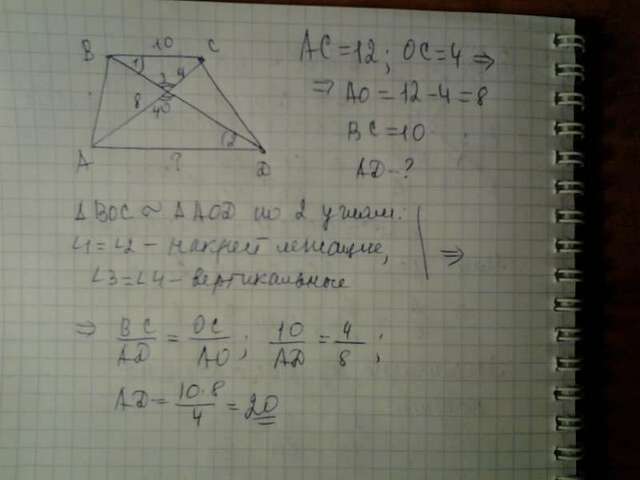 10
B C
1 3 4
8 4 O
2
A ? D
AC = 12; OC = 4 ⇒
⇒ AO = 12 - 4 = 8
BC = 10
AD - ?
ΔBOC ~ ΔAOD по 2 углам:
∠1 = ∠2 - накрест лежащие,
∠3 = ∠4 - вертикальные
⇒
⇒ BC/AD = OC/AO; 10/AD = 4/8;
AD = 10·8/4 = 20